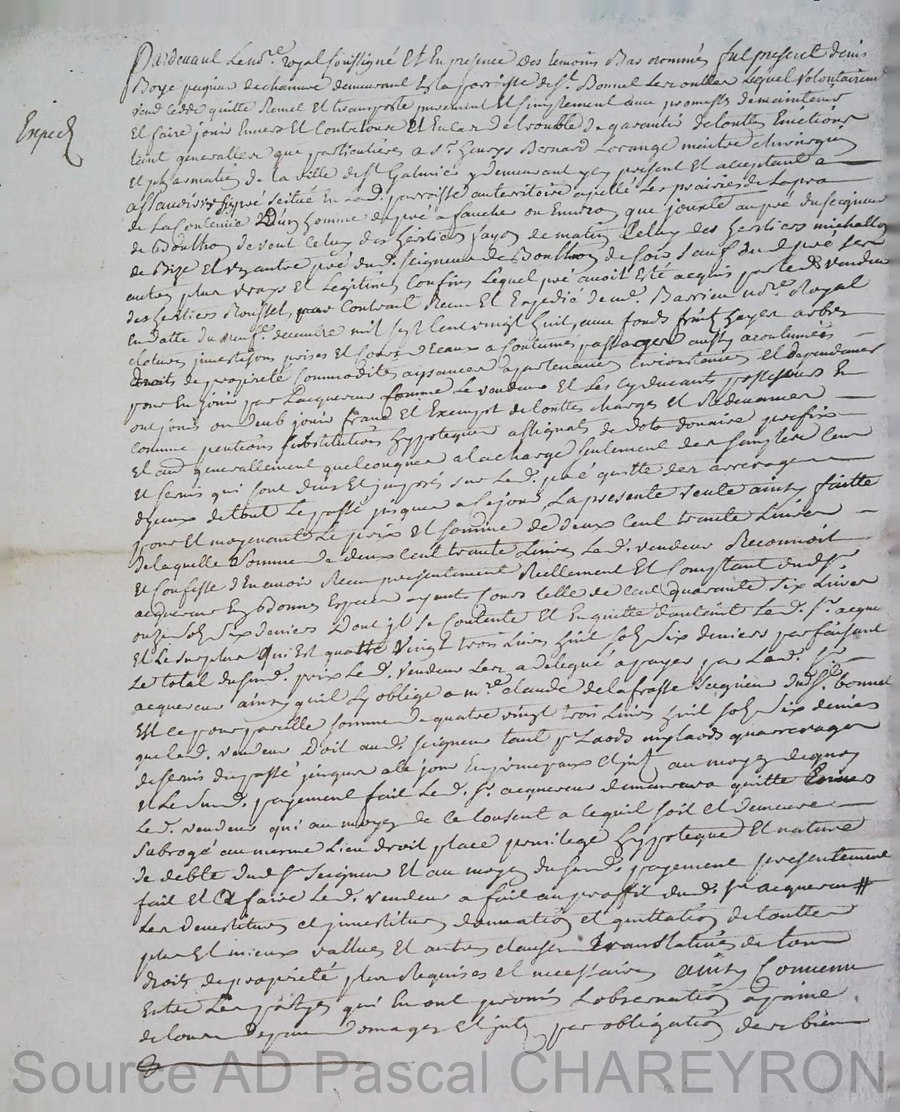 Pardevant le no.re royal soussigné et en presence des temoins bas nommés fut present denis
Boye peigneur de chanvre demeurant en la parroisse de st. Bonnet les oulles lequel volontairement
vend cedde quitte remet et transporte purement et simplement avec promesse de maintenir
Exped
et faire jouir envers et contre tous et en cas de trouble de garantie de touttes evictions
tant generalles que particulieres a sr. Bernard Lorange maitre chirurgien
et pharmatien de la ville de st Galmier y demeurant icy present et acceptant a
pré scitué en lad. parroisse au territoire appellé les prairies de
de la contenue d'un homme de pré a faucher ou environ que jouxte au pré du seigneur
de Bouthon de vent celuy des heritiers fayon de matin celuy des heritiers michallon
de Bize et un autre pré du d. seigneur de Bouthon de soir sauf dud. pré ses
autres plus vrays et legitimes confins lequel pré avoit esté acquis par led. vendeur
des heritiers Rousset, par contrant receu et expedié de me. Barrieu no.re Royal
en datte du neuf decembre mil sept cent vingt huit, avec fonds fruit hayes arbres
clotures, investisons prises et cours d'eaux a coutumes passages aussy acoutumées
droits de propriété commodités aysances apartenances circonstances et dependances
pour en jouir par l'acquereur comme le vendeur et les cydevants possesseurs en
ont jouis ou deub jouir franc et exempt de touttes charges et redevances
comme pentions substitutions hypoteques assignats de dote douaire prefix
et aud. generallement quelconques a la charge seulement des simples cens
et servis qui sont dus et imposés sur led. pré quitte des arrerages
d'yceux de tout le passé jusques a ce jour, la presente vente ainsy faitte
pour et moyenant le prix et somme de deux cent trante livres
de laquelle somme de deux cent trante livres led. vendeur reconnoit
et confesse d'en avoir receu presentement reellement et comptant dud. sr.
acquereur en bonnes especes ayant cours celle de cent quarante six livres
onze sols six deniers dont il se contente et en quitte d'autant led. sr. acquereur
et le surplus qui est quatre vingt trois livres huit sols six deniers parfaisant
le total dususd. prix led. vendeur les a delegué a payer par led. sr.
acquereur ainsy qu'il s'y oblige a mre. claude de la frasse seigneur dud. st. bonnet
est ce pour pareille somme de quatre vingt trois livres huit sols six deniers
que led. vendeur doit aud. seigneur tant pr. laods mylaods qu'arrerages
de servis du passé jusques a ce jour au moyen de quoy
et le susd. payement fait led. sr. acquereur demeurera quitte envers
led. vendeur qui au moyen de ce consent a ce qu'il soit et demeure
subrogé au meme lieu droit place privilege hypoteque et nature
de debte dud. sr. seigneur et au moyen dususd. payement presentement
fait et a faire led. vendeur a fait au proffit dud. sr. acquereur
les devestitures et investitures donnation et quittation de touttes
plus et mieux vallues et autres clauses translatives de tous
droits de propriété plus requises et necessaires ainsy convenu
entre les parties qui en ont promis l'observation a peine
de tous depens domages et inter. par obligation de ses biens
Source AD Pascal CHAREYRON